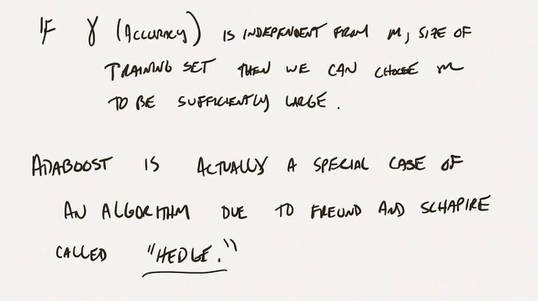 IF γ (ACCURACY) IS INDEPENDENT FROM m, SIZE OF
TRAINING SET THEN WE CAN CHOOSE m
TO BE SUFFICIENTLY LARGE.
ADABOOST IS ACTUALLY A SPECIAL CASE OF
AN ALGORITHM DUE TO FREUND AND SCHAPIRE
CALLED "HEDGE."